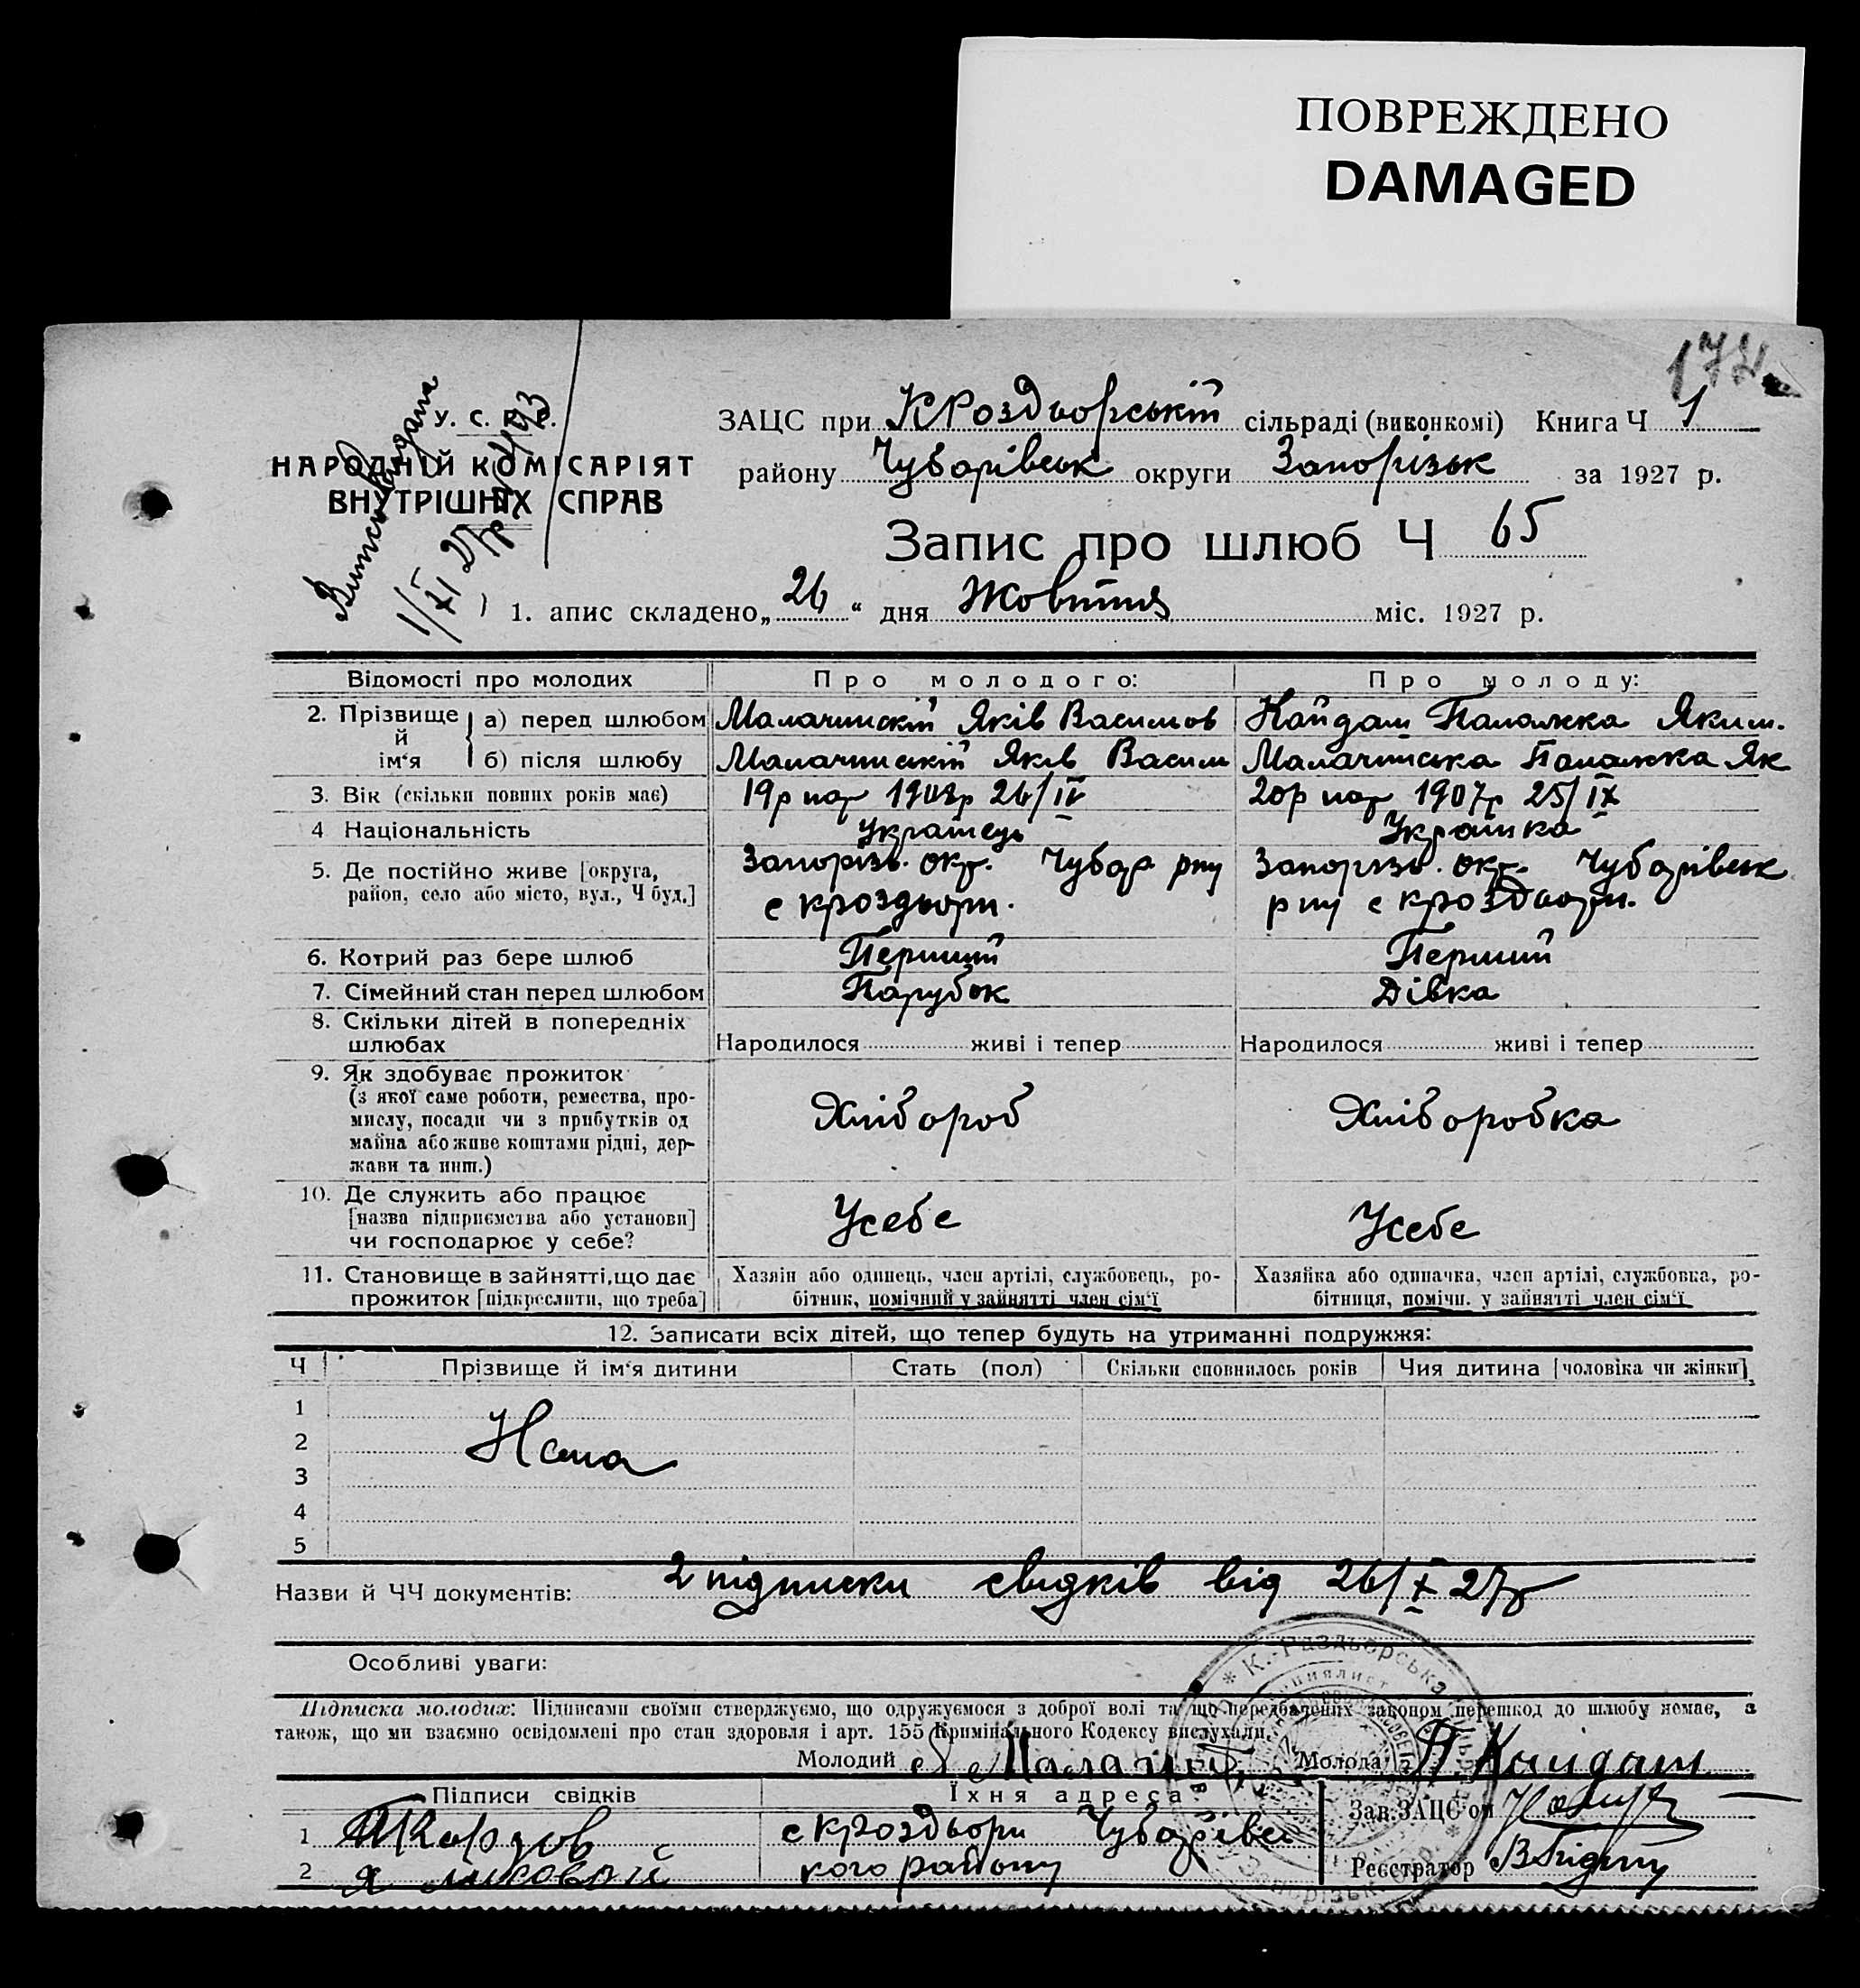 ПОВРЕЖДЕНО
DAMAGED
174
У. С. Р. Р.
НАРОДНІЙ КОМІСАРІЯТ
ВНУТРІШНІХ СПРАВ
1/XI 27р
ЗАЦС при КРоздьорській сільраді (виконкомі) Книга Ч 1
району Чубарівськ округи Запорізьк за 1927 р.
Запис про шлюб Ч 65
1. апис складено „26“ дня Жовтня міс. 1927 р.
Відомості про молодих Про молодого: Про молоду:
2. Прізвище й ім‘я а) перед шлюбом Малачинскій Яків Васильов Кайдаш Палажка Яким.
б) після шлюбу Малачинскій Яків Васильов Малачинська Палажка Як
3. Вік (скільки повних років має) 19р нар 1908р 26/IV 20р нар 1907р 25/IX
4 Національність Українець Українка
5. Де постійно живе [округа, Запорізь. окр. Чубар рну Запорізь. окр. Чубарівськ
район, село або місто, вул., Ч буд.] с кроздьори. рну с кроздьори.
6. Котрий раз бере шлюб Перший Перший
7. Сімейний стан перед шлюбом Парубок Дівка
8. Скільки дітей в попередніх
шлюбах Народилося живі і тепер Народилося живі і тепер
9. Як здобуває прожиток
(з якої саме роботи, ремества, про-
мислу, посади чи з прибутків од Хлібороб Хліборобка
майна або живе коштами рідні, дер-
жави та инш.)
10. Де служить або працює
[назва підприємства або установи] Усебе Усебе
чи господарює у себе?
11. Становище в зайнятті, що дає Хазяїн або одинець, член артілі, службовець, ро- Хазяйка або одиначка, член артілі, службовка, ро-
прожиток [підкреслити, що треба] бітник, помічний у зайнятті член сім‘ї бітниця, помічн. у зайнятті член сім‘ї
12. Записати всіх дітей, що тепер будуть на утриманні подружжя:
Ч Прізвище й ім‘я дитини Стать (пол) Скільки сповнилось років Чия дитина [чоловіка чи жінки]
1
2 Нема
3
4
5
Назви й ЧЧ документів: 2 підписки свидків від 26/X 27р
Особливі уваги:
Підписка молодих: Підписами своїми стверджуємо, що одружуємося з доброї волі та що передбачених законом перешкод до шлюбу немає, а
також, що ми взаємно освідомлені про стан здоровля і арт. 155 Кримінального Кодексу вислухали.
Молодий Молода П Кайдаш
Підписи свідків Їхня адреса Зав. ЗАЦС‘ом
1 с кроздьори Чубарівсь
2 кого району Реєстратор
К.-Раздьорська